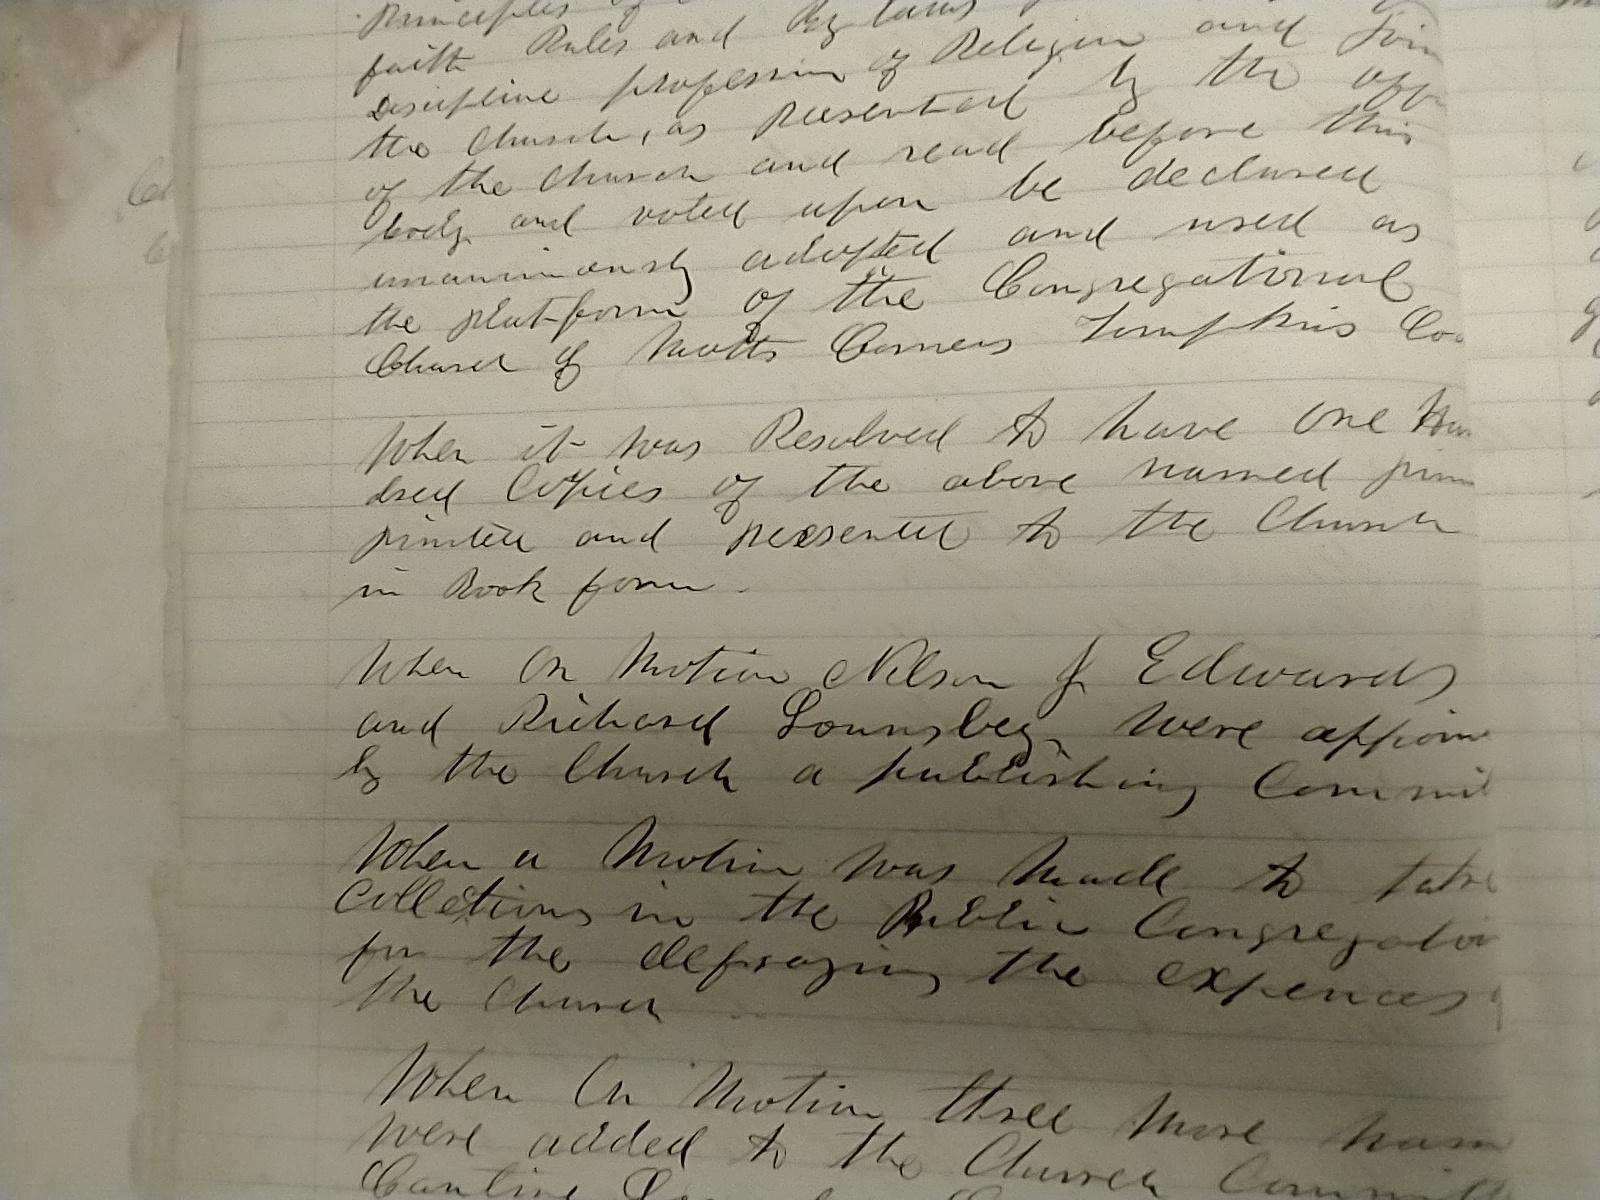 principles of
faith Rules and By laws
discipline profession of Religion and Join
the Church, as Presented by the off
of the Church and read before this
body and voted upon be declared
unanimously adopted and used as
the platform of the Congregational
Church of Motts Corners Tompkins Co
When it was Resolved to have one Hun
dred Copies of the above named prin
printed and presented to the Church
in Book form.
When On Motion Nelson J Edwards
and Richard Lounsbey, were appoin
by the Church a publishing Commit
When a Motion was Made to take
Collections in the Public Congregation
for the defraying the expences
the Church
When On Motion three More nam
were added to the Church Committ
Cantine